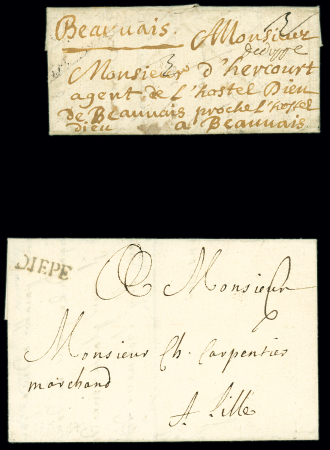 Beauvais.
3
Monsieur
dedieppe
3
Monsieur d'hercourt
agent de L'hostel Dieu
de Beauvais proche L'hostel
dieu a Beauvais
DIEPE
Monsieur
Monsieur Ch. Carpentier
marchand
A Lille